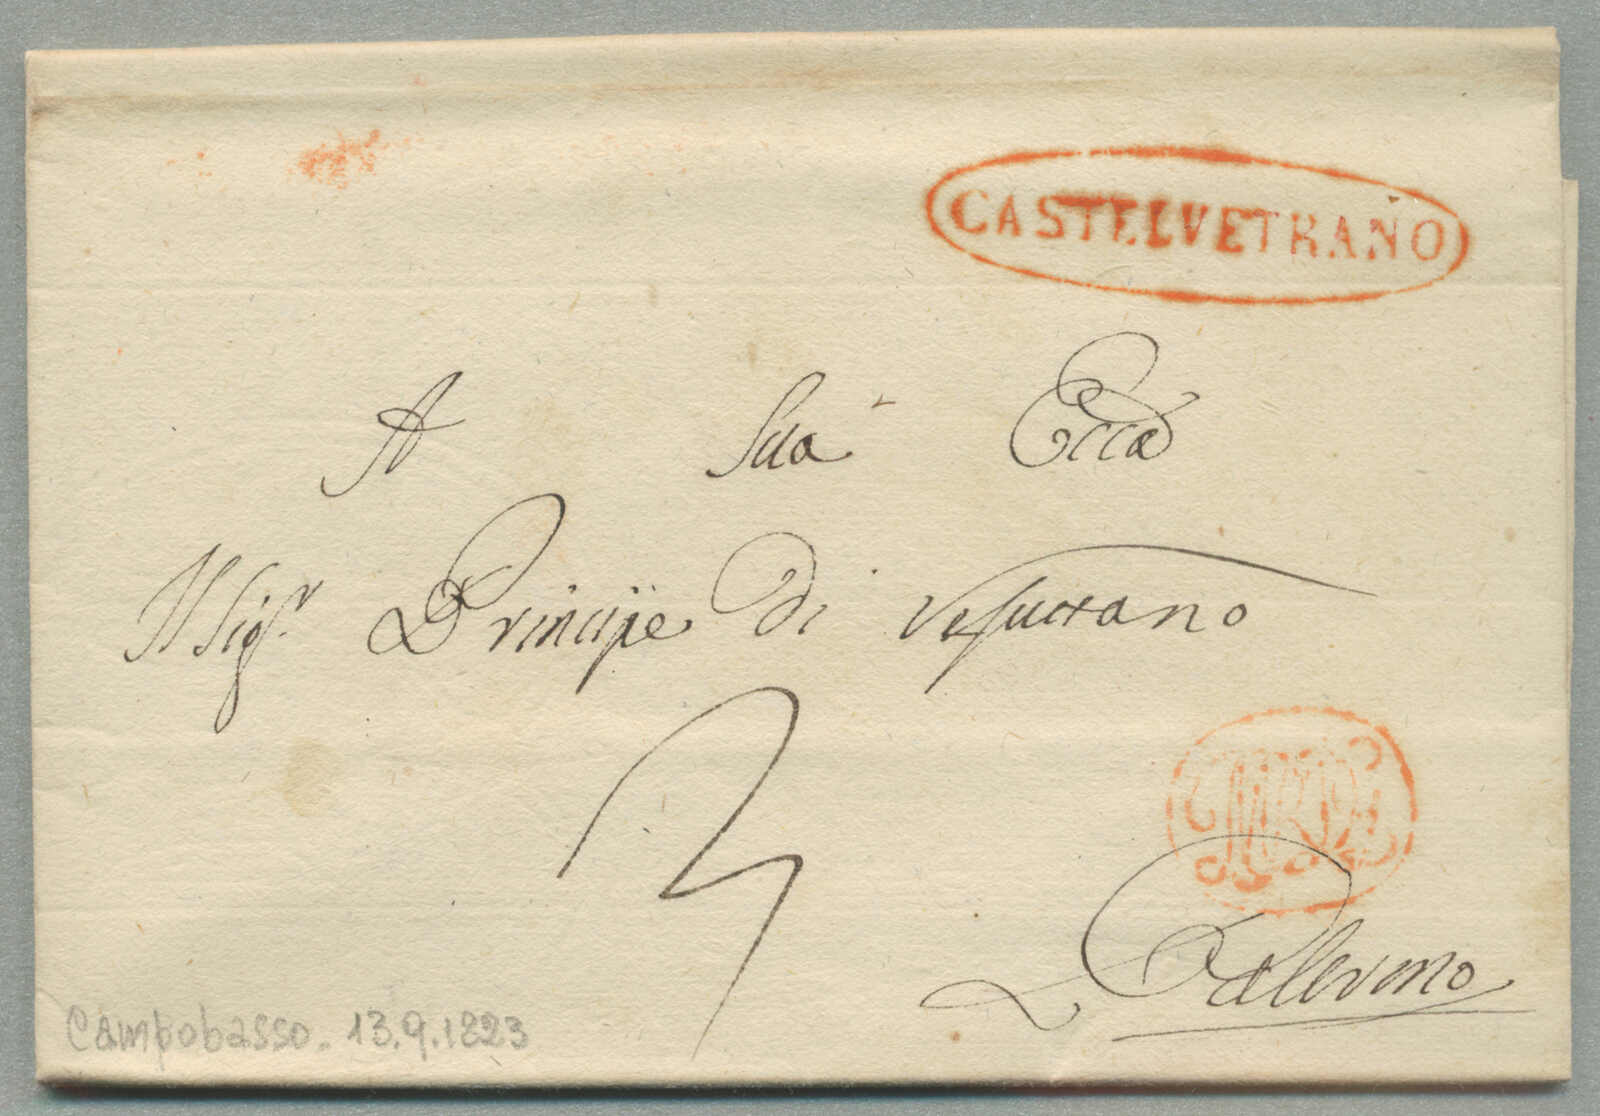 CASTELVETRANO
A Sua Ecc.a
Il Sig.r Principe di
3
Palermo
Campobasso. 13.9.1823